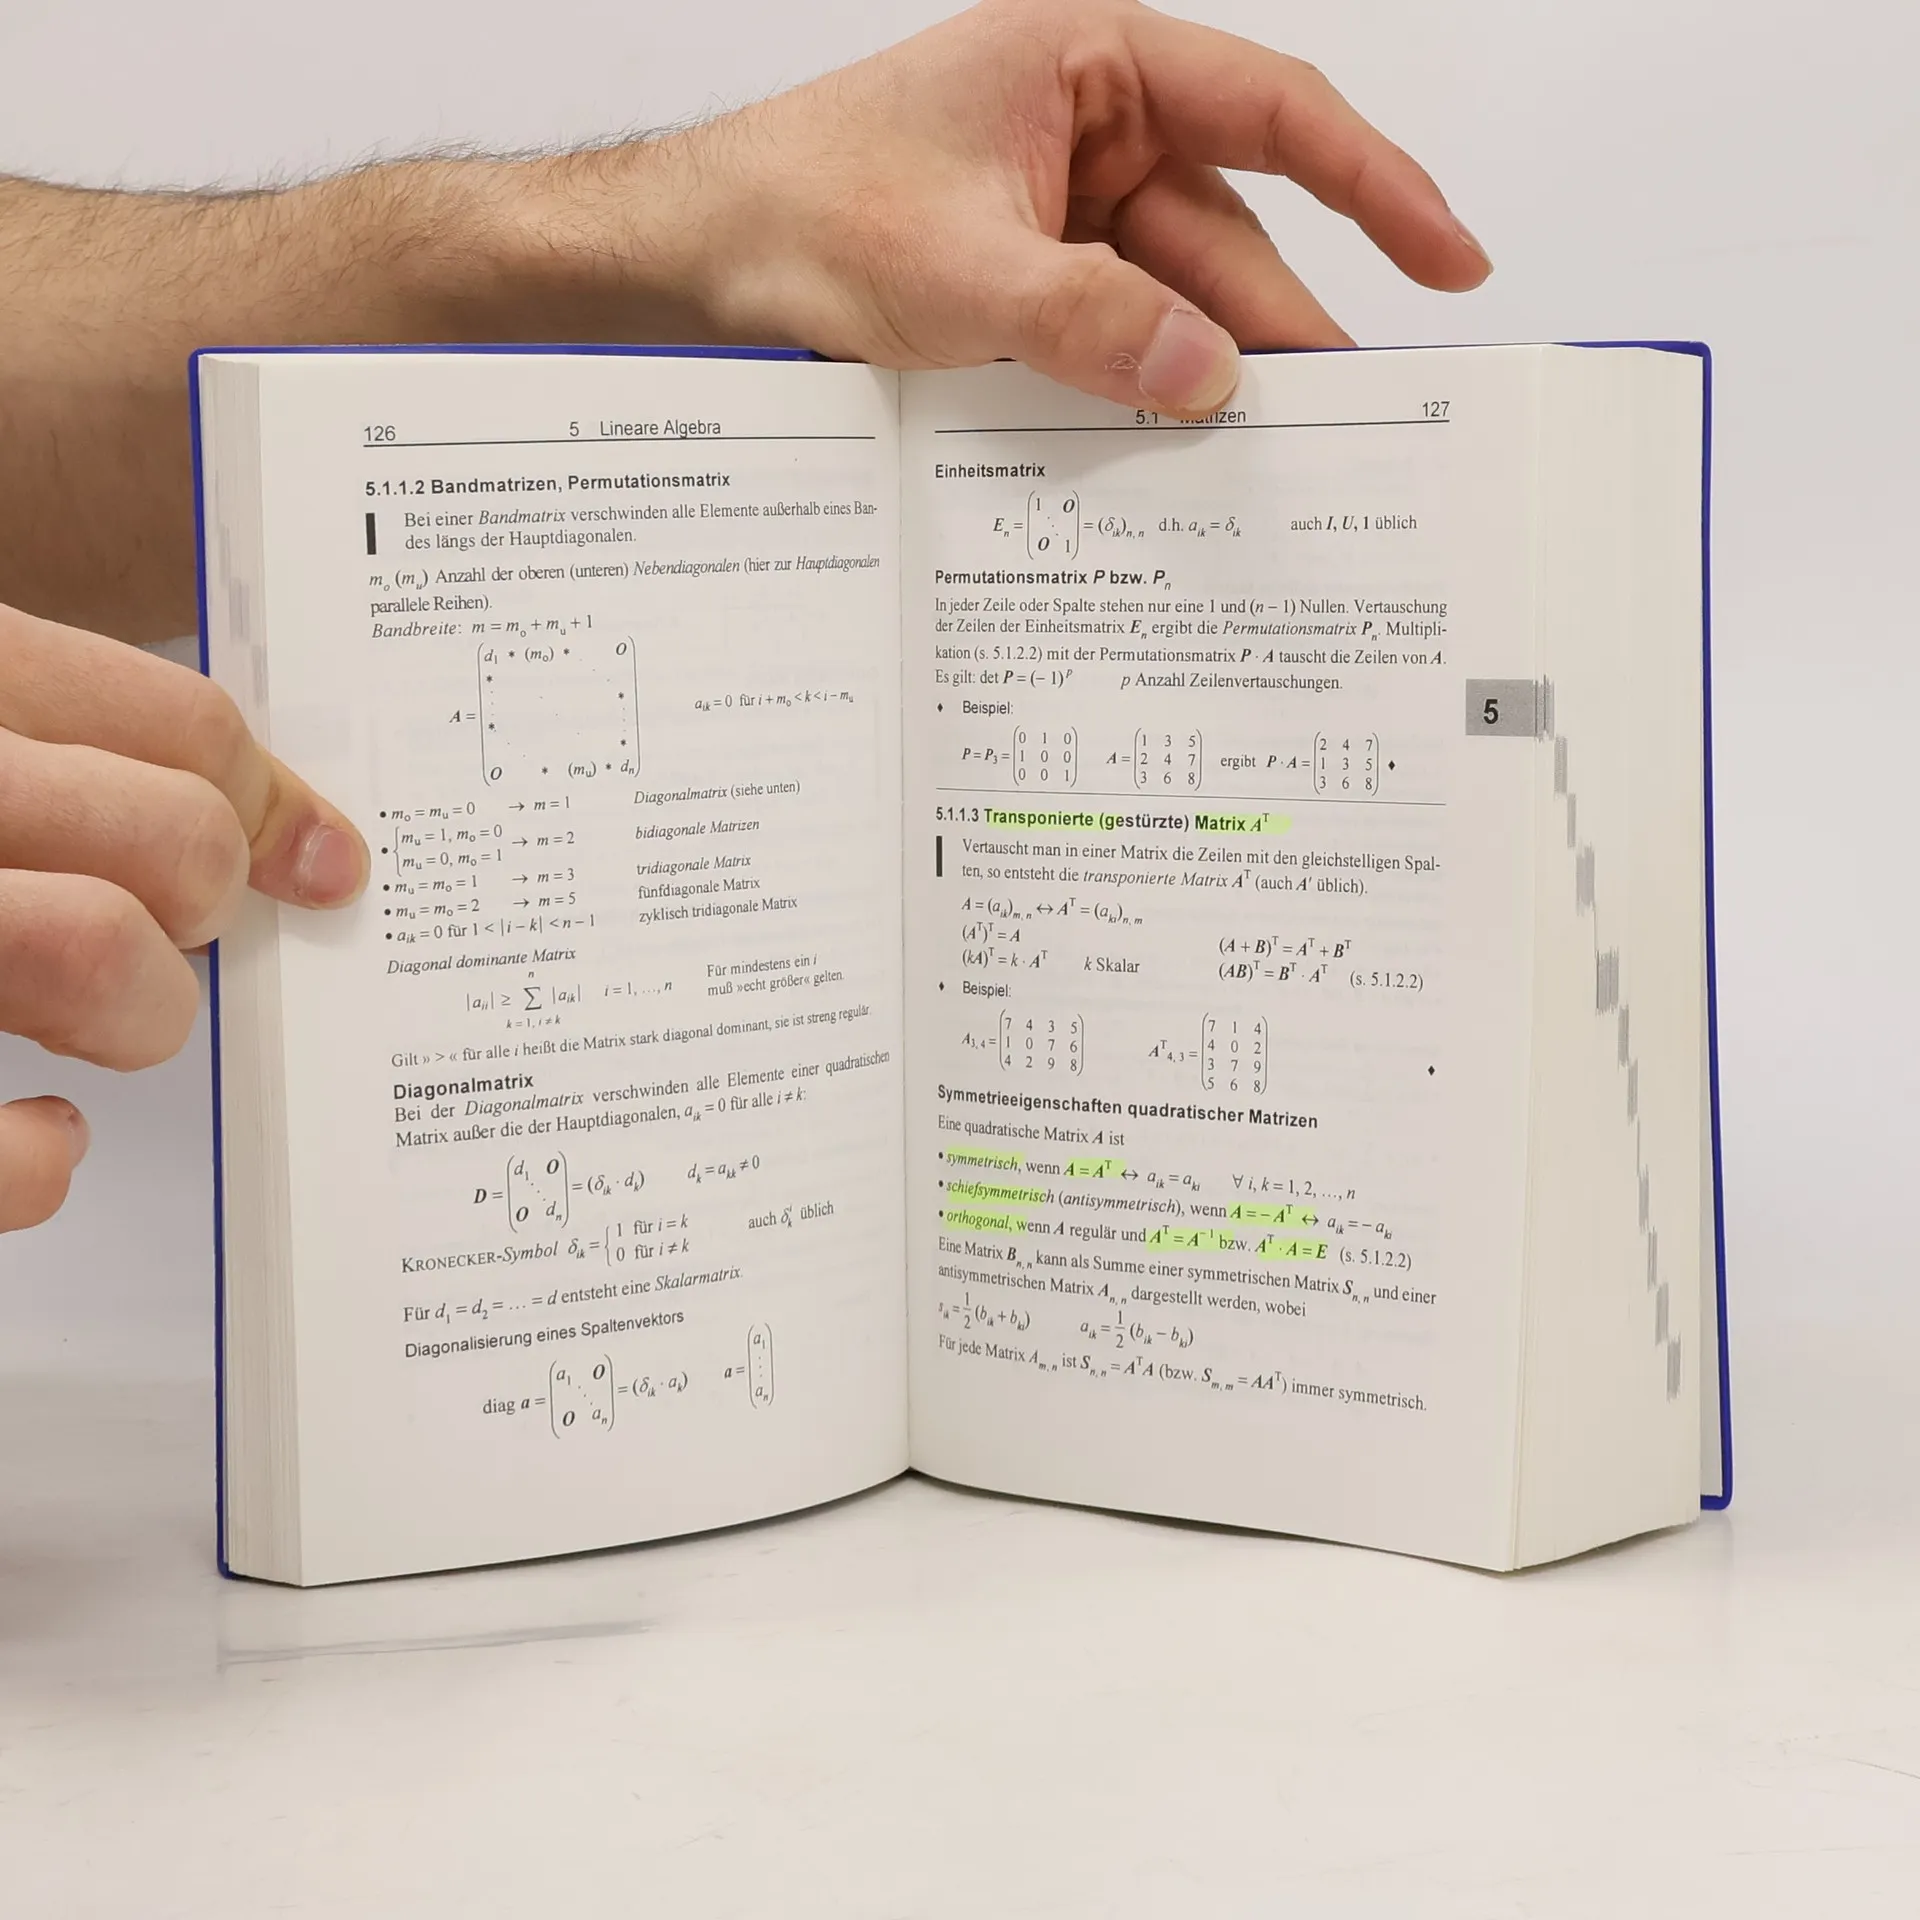 126 5 Lineare Algebra
5.1.1.2 Bandmatrizen, Permutationsmatrix
Bei einer Bandmatrix verschwinden alle Elemente außerhalb eines Ban-
des längs der Hauptdiagonalen.
mₒ (mᵤ) Anzahl der oberen (unteren) Nebendiagonalen (hier zur Hauptdiagonalen
parallele Reihen).
Bandbreite: m = mₒ + mᵤ + 1
d₁ * (mₒ) * O
*
*
A = aᵢₖ = 0 für i + mₒ < k < i − mᵤ
*
*
O * (mᵤ) * dₙ
• mₒ = mᵤ = 0 → m = 1 Diagonalmatrix (siehe unten)
• { mᵤ = 1, mₒ = 0
mᵤ = 0, mₒ = 1 → m = 2 bidiagonale Matrizen
• mᵤ = mₒ = 1 → m = 3 tridiagonale Matrix
• mᵤ = mₒ = 2 → m = 5 fünfdiagonale Matrix
• aᵢₖ = 0 für 1 < |i − k| < n − 1 zyklisch tridiagonale Matrix
Diagonal dominante Matrix
|aᵢᵢ| ≥ ∑ |aᵢₖ| i = 1, …, n Für mindestens ein i
n
k = 1, i ≠ k
muß »echt größer« gelten.
Gilt » > « für alle i heißt die Matrix stark diagonal dominant, sie ist streng regulär.
Diagonalmatrix
Bei der Diagonalmatrix verschwinden alle Elemente einer quadratischen
Matrix außer die der Hauptdiagonalen, aᵢₖ = 0 für alle i ≠ k:
D = (d₁ O ⋱ O dₙ) = (δᵢₖ · dₖ) dₖ = aₖₖ ≠ 0
KRONECKER-Symbol δᵢₖ = { 1 für i = k
0 für i ≠ k auch δₖⁱ üblich
Für d₁ = d₂ = … = d entsteht eine Skalarmatrix.
Diagonalisierung eines Spaltenvektors
diag a = (a₁ O ⋱ O aₙ) = (δᵢₖ · aₖ) a = (a₁ ⋮ aₙ)
5.1 127
Einheitsmatrix
Eₙ = (1 O ⋱ O 1) = (δᵢₖ)ₙ, ₙ d.h. aᵢₖ = δᵢₖ auch I, U, 1 üblich
Permutationsmatrix P bzw. Pₙ
In jeder Zeile oder Spalte stehen nur eine 1 und (n − 1) Nullen. Vertauschung
der Zeilen der Einheitsmatrix Eₙ ergibt die Permutationsmatrix Pₙ. Multipli-
kation (s. 5.1.2.2) mit der Permutationsmatrix P · A tauscht die Zeilen von A.
Es gilt: det P = (− 1)ᵖ p Anzahl Zeilenvertauschungen.
♦ Beispiel:
0 1 0 1 3 5 2 4 7
P = P₃ = 1 0 0 A = 2 4 7 ergibt P · A = 1 3 5 ♦
0 0 1 3 6 8 3 6 8
5
5.1.1.3 Transponierte (gestürzte) Matrix Aᵀ
Vertauscht man in einer Matrix die Zeilen mit den gleichstelligen Spal-
ten, so entsteht die transponierte Matrix Aᵀ (auch A′ üblich).
A = (aᵢₖ)ₘ, ₙ ↔ Aᵀ = (aₖᵢ)ₙ, ₘ
(Aᵀ)ᵀ = A (A + B)ᵀ = Aᵀ + Bᵀ
(kA)ᵀ = k · Aᵀ k Skalar (AB)ᵀ = Bᵀ · Aᵀ (s. 5.1.2.2)
♦ Beispiel:
7 4 3 5 7 1 4
A₃, ₄ = 1 0 7 6 Aᵀ₄, ₃ = 4 0 2
4 2 9 8 3 7 9 ♦
5 6 8
Symmetrieeigenschaften quadratischer Matrizen
Eine quadratische Matrix A ist
• symmetrisch, wenn A = Aᵀ ↔ aᵢₖ = aₖᵢ ∀ i, k = 1, 2, …, n
• schiefsymmetrisch (antisymmetrisch), wenn A = − Aᵀ ↔ aᵢₖ = − aₖᵢ
• orthogonal, wenn A regulär und Aᵀ = A⁻¹ bzw. Aᵀ · A = E (s. 5.1.2.2)
Eine Matrix Bₙ, ₙ kann als Summe einer symmetrischen Matrix Sₙ, ₙ und einer
antisymmetrischen Matrix Aₙ, ₙ dargestellt werden, wobei
sᵢₖ = 1/2 (bᵢₖ + bₖᵢ) aᵢₖ = 1/2 (bᵢₖ − bₖᵢ)
Für jede Matrix Aₘ, ₙ ist Sₙ, ₙ = AᵀA (bzw. Sₘ, ₘ = AAᵀ) immer symmetrisch.